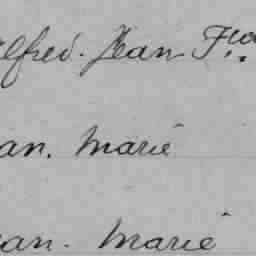 lfred. Jean F.co
an. Marie
ean. Marie